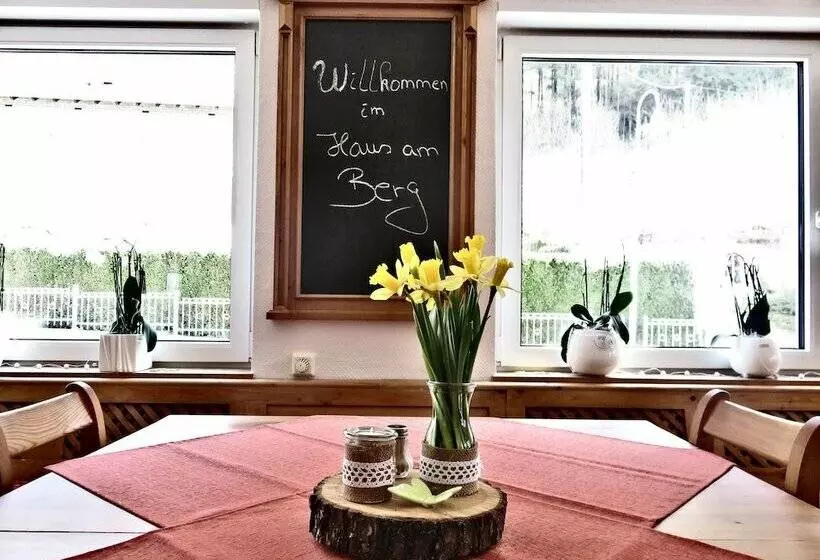 Willkommen
im
Haus am
Berg